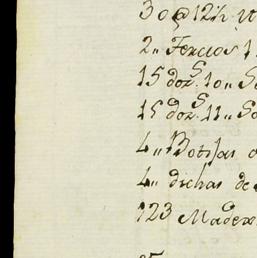 30 @ 12 ½
2,, Tercios 1
15 doz.s 10,, S
15 doz.s 11,, So
4,, Botijas
4,, dichas de
123 Madex